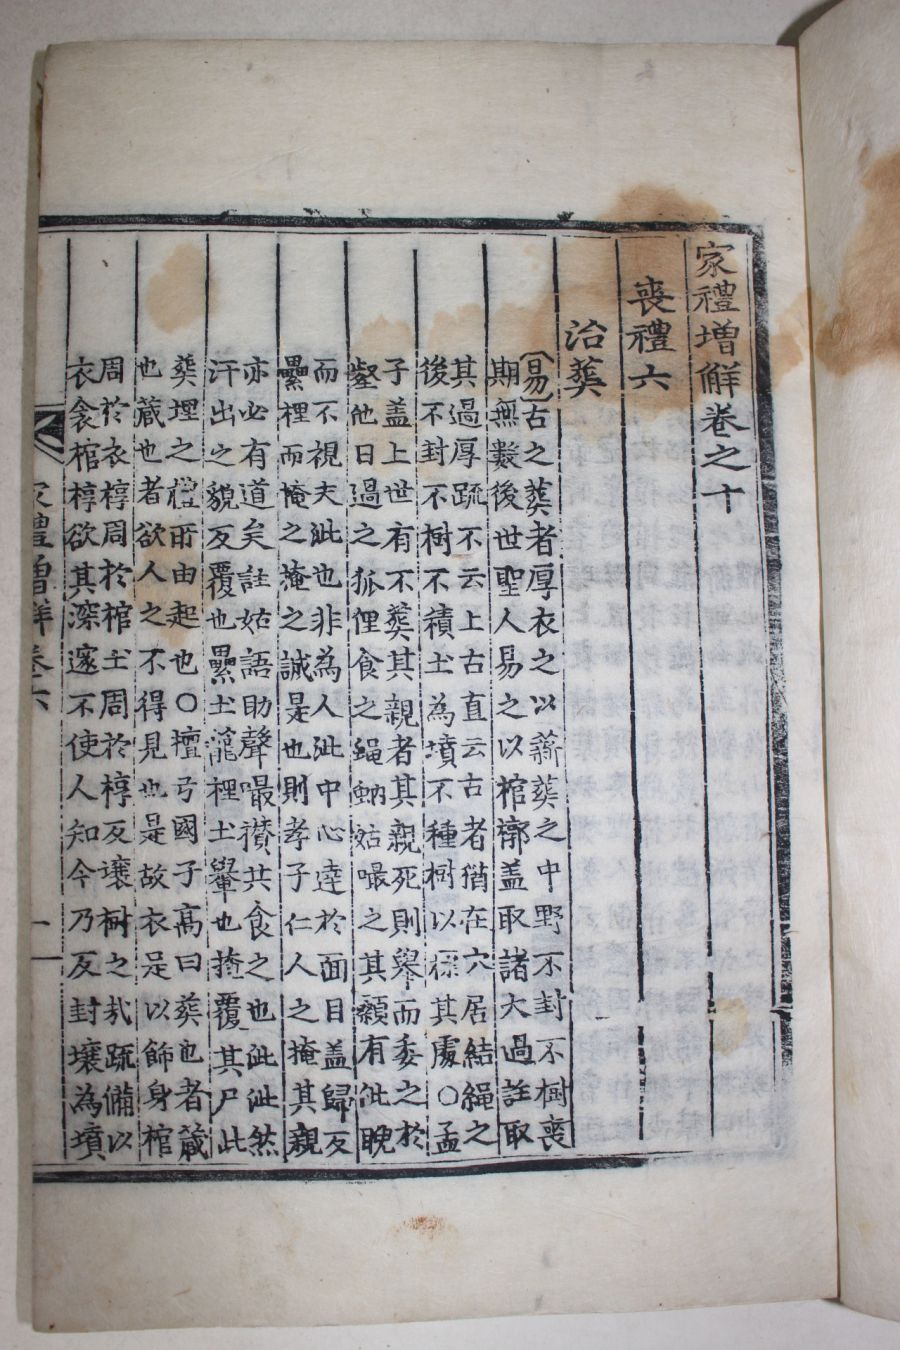 家禮增解卷之十
喪禮六
治葬
(易)古之葬者厚衣之以薪葬之中野不封不樹喪
期無數後世聖人易之以棺槨盖取諸大過註取
其過厚䟽不云上古直云古者猶在穴居結繩之
後不封不樹不積土為墳不種樹以標其處○孟
子盖上世有不葬其親者其親死則舉而委之於
壑他日過之狐狸食之蝇蚋姑嘬之其顙有泚睨
而不視夫泚也非為人泚中心達於面目盖歸反
虆梩而掩之掩之誠是也則孝子仁人之掩其親
亦必有道矣註姑語助聲嘬攅共食之也泚泚然
汗出之貌反覆也虆土籠梩土轝也掩覆其尸此
葬埋之禮所由起也○檀弓國子高曰葬也者蔵
也蔵也者欲人之不得見也是故衣足以飾身棺
周於衣椁周於棺土周於椁反壤樹之㢤䟽備以
衣衾棺椁欲其深邃不使人知今乃反封壤為墳
家禮增解卷六
一